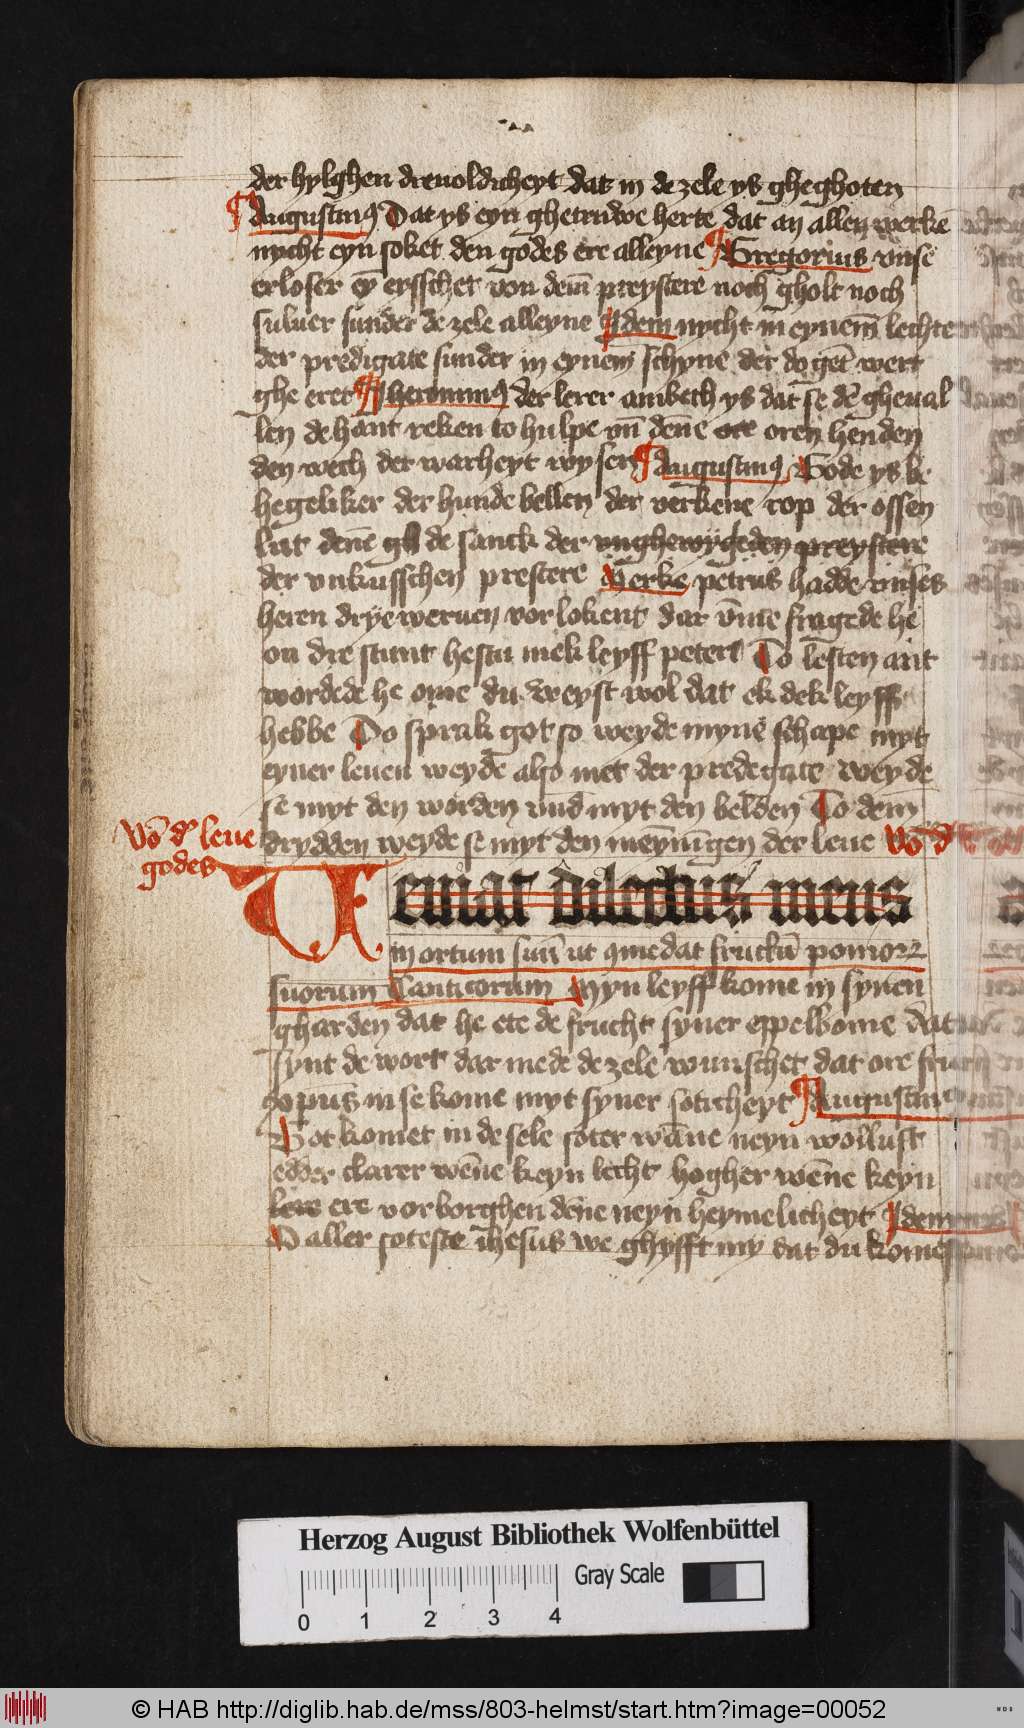 der hylghen dreuoldicheyt dat in de zele ys gheghoten
Augustinꝰ Dat ys eyn ghetruwe herte dat an allen werkē
nycht eyn soket den godes ere alleyne Gregorius vnse
erloser eȳ eysschet von dem preystere noch gholt noch
suluer sunder de zele alleyne Idem nycht in eynem lechte
der predigate sunder in eynem schyne der do get wert
ghe eret Iheronimꝰ der lerer ambeth ys dat se dē gheual
len de hant reken to hulpe vn̄ dēne ore oren henden
den wech der warheyt wysen Augustinꝰ Gode ys be
hegeliker der hunde bellen der verkene rop der ossen
lut dene gh de sanck der vnghewygeden preystere
der vnkusschen prestere Merke petrus hadde vnses
heren drye weruen vorlokent dar vm̄e fragede he
on dre stunt hestu mek leyff peter To lesten ant
wordede he ome du weyst wol dat ek dek leyff
hebbe Do sprak got so weyde myne schape myt
eyner leuen weyde also met der predegate weyde
se myt den worden vnd myt den belden To dem
drydden weyde se myt den meynīgen der leue Vō dʳ
Vō dʳ leue
godes
Veniat dilectus meus
in ortum suū ut 9medat fructū pomoꝝ
suorum Canticorum Myn leyff kome in synen
gharden dat he ete de frucht syner eppelbome dat
synt de wort dar mede de zele wunschet dat ore
in se kome myt syner soticheyt Augustinꝰ
Got komet in de sele soter wāne neyn wollust
edder clarer wēne keyn lecht hogher wēne keyn
ere vorborghen dēne neyn heymelicheyt Idem
O aller soteste ihesus we ghyfft my dat du komest
Herzog August Bibliothek Wolfenbüttel
Gray Scale
0 1 2 3 4
© HAB http://diglib.hab.de/mss/803-helmst/start.htm?image=00052